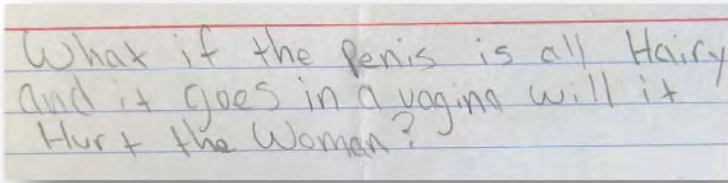 What if the Penis is all Hairy
and it goes in a vagina will it
Hurt the Woman?